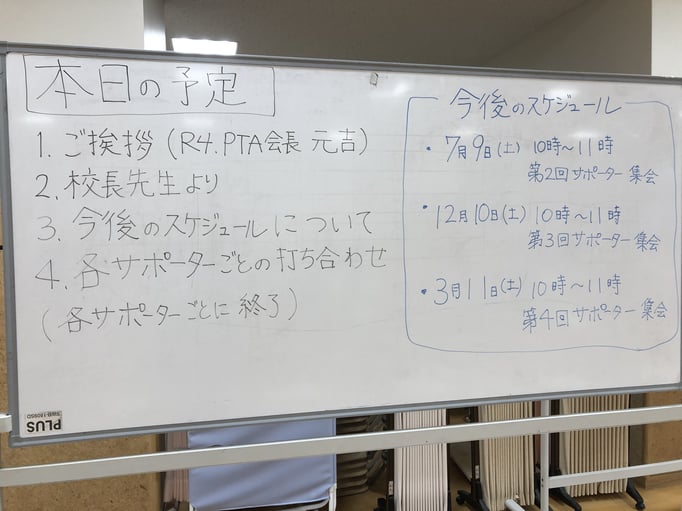 本日の予定
1. ご挨拶 (R4.PTA会長 元吉)
2. 校長先生より
3. 今後のスケジュールについて
4. 各サポーターごとの打ち合わせ
(各サポーターごとに終了)
今後のスケジュール
・7月9日(土) 10時〜11時
第2回サポーター集会
・12月10日(土) 10時〜11時
第3回サポーター集会
・3月11日(土) 10時〜11時
第4回サポーター集会
PLUS